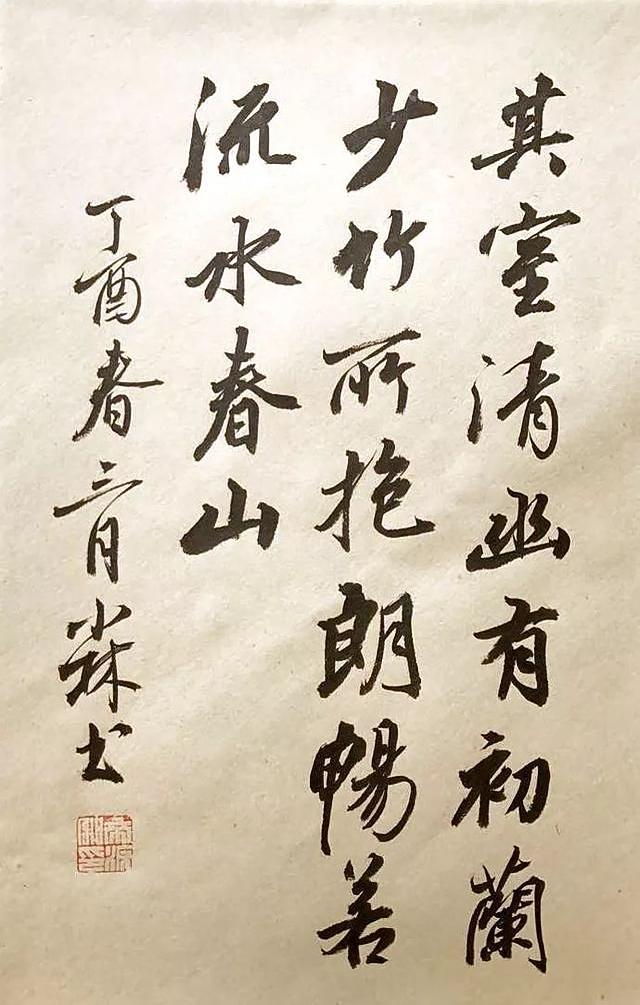 其室清幽有初蘭
少竹所抱朗暢若
流水春山
丁酉春三月小森书